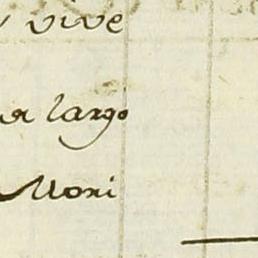 vive
largo
Mori